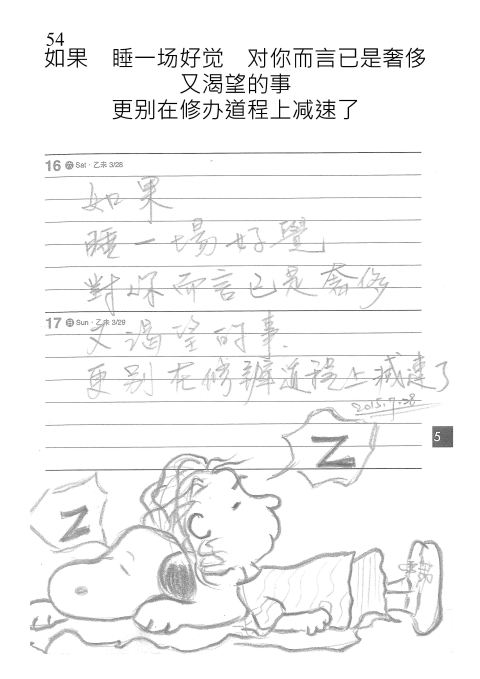 54
如果　睡一场好觉　对你而言已是奢侈
又渴望的事
更别在修办道程上减速了
16 六 Sat · 乙未 3/28
如果
睡一場好覺
對你而言已是奢侈
17 日 Sun · 乙未 3/29
又渴望的事.
更别在修辦道程上減速了
2015.7.28
5
Z
Z